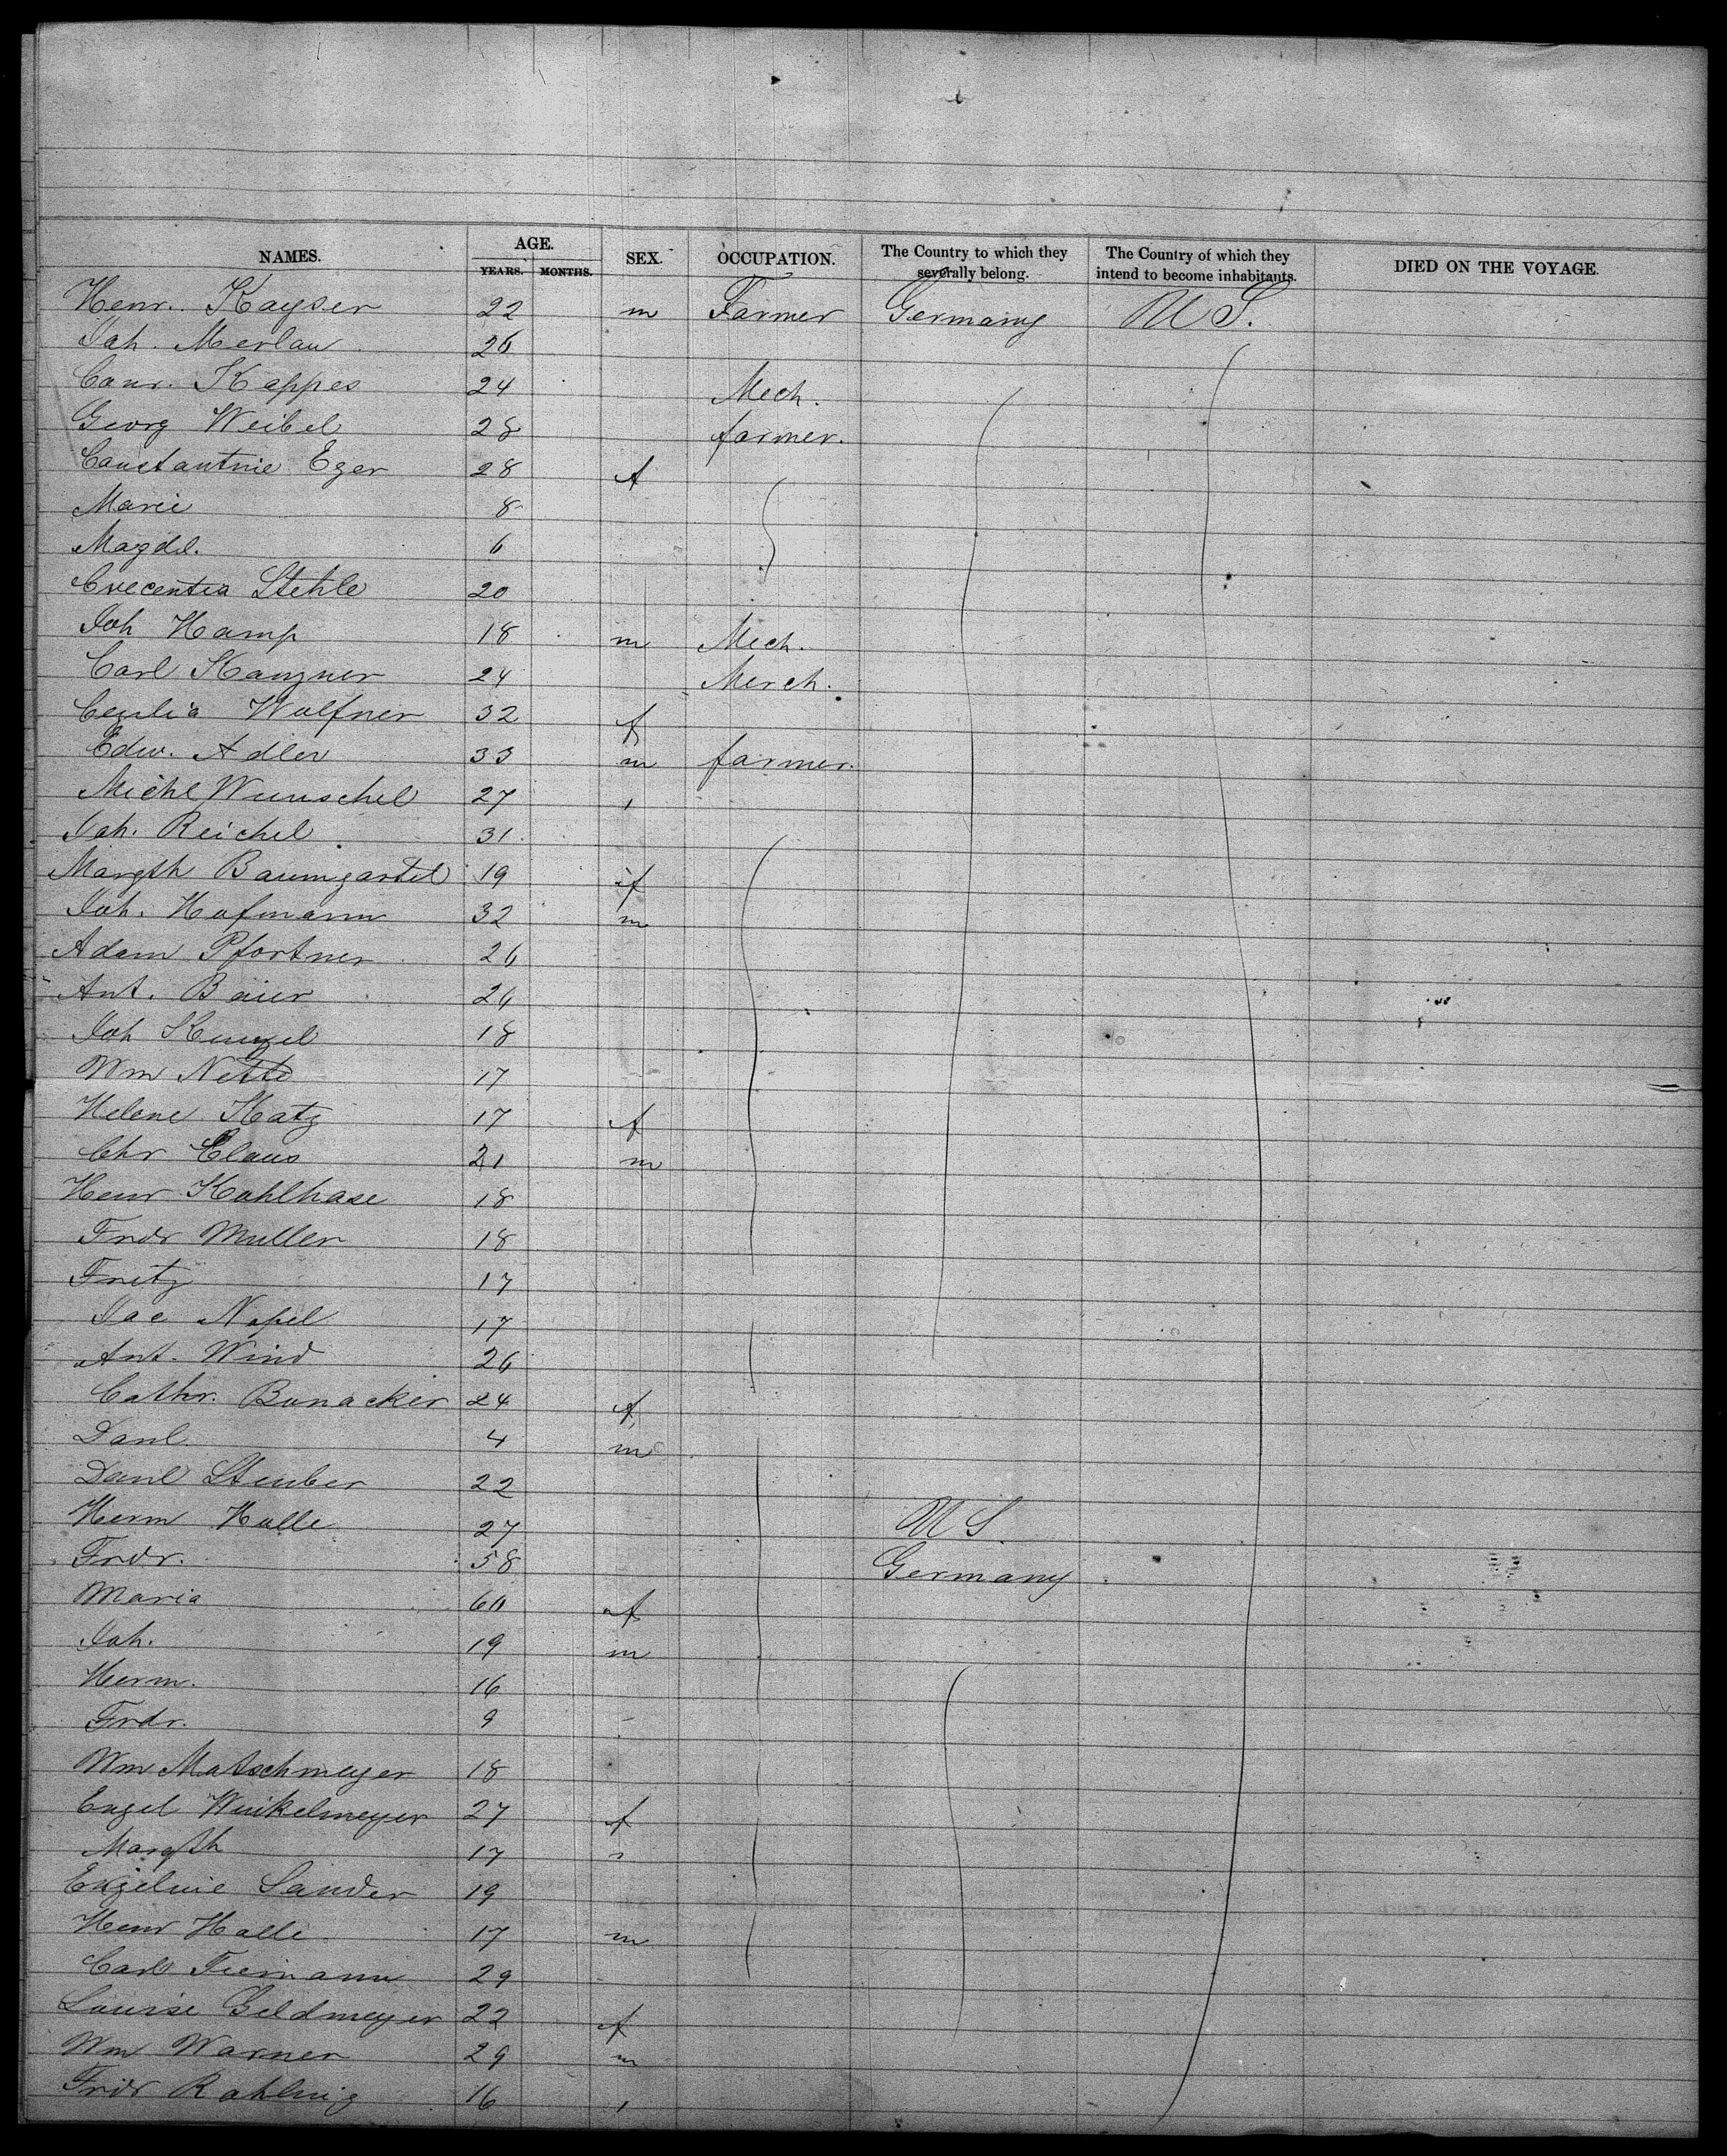 NAMES. AGE. YEARS. MONTHS. SEX. OCCUPATION. The Country to which they severally belong. The Country of which they intend to become inhabitants. DIED ON THE VOYAGE.
Henr. Kayser 22 m Farmer Germany U S.
Joh. Merlau 26
Conr. Kappes 24 Mech.
Georg Weibel 28 farmer.
Constantine Eger 28 f
Marie 8
Magdl. 6
Crecentia Stehle 20
Joh Hamp 18 m Mech.
Carl Kanzner 24 Merch.
Cecilia Wolfner 32 f
Edw. Adler 33 m farmer.
Michl Wunschel 27 "
Joh. Reichel 31
Margth Baumgartel 19 f
Joh. Hofmann 32 m
Adam Pfortner 26
Ant. Baier 26
Joh Kunzel 18
Wm Nette 17
Helene Katz 17 f
Chr Claus 21 m
Henr Kohlhase 18
Frdr Muller 18
Fritz 17
Jac Napel 17
Ant. Wind 26
Cathr. Bonacker 24 f
Danl 4 m
Danl Steuber 22
Herm Halle 27 U S
Frdr. 58 Germany
Maria 60 f
Joh. 19 m
Herm. 16
Frdr. 9
Wm Matschmeyer 18
Engel Winkelmeyer 27 f
Margth 17 "
Engeline Sander 19
Henr Halle 17 m
Carl Tiemann 29
Louise Geldmeyer 22 f
Wm Warner 29 m
Frdr Rahlnig 16 "